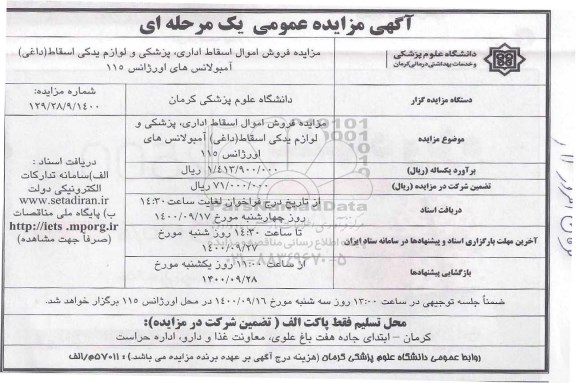 آگهی مزایده عمومی یک مرحله ای
دانشگاه علوم پزشکی
و خدمات بهداشتی درمانی کرمان
مزایده فروش اموال اسقاط اداری، پزشکی و لوازم یدکی اسقاط(داغی)
آمبولانس های اورژانس ۱۱۵
دستگاه مزایده گزار
دانشگاه علوم پزشکی کرمان
شماره مزایده:
۱۲۹/۲۸/۹/۱۴۰۰
موضوع مزایده
مزایده فروش اموال اسقاط اداری، پزشکی و
لوازم یدکی اسقاط(داغی) آمبولانس های
اورژانس ۱۱۵
برآورد یکساله (ریال)
۱/۴۱۳/۹۰۰/۰۰۰ ریال
تضمین شرکت در مزایده (ریال)
۷۱/۰۰۰/۰۰۰ ریال
دریافت اسناد
از تاریخ درج فراخوان لغایت ساعت ۱۴:۳۰
روز چهارشنبه مورخ ۱۴۰۰/۰۹/۱۷
آخرین مهلت بارگزاری اسناد و پیشنهادها در سامانه ستاد ایران
تا ساعت ۱۴:۳۰ روز شنبه مورخ
۱۴۰۰/۰۹/۲۷
بازگشایی پیشنهادها
از ساعت ۱۱:۰۰ روز یکشنبه مورخ
۱۴۰۰/۰۹/۲۸
دریافت اسناد :
الف)سامانه تدارکات
الکترونیکی دولت
www.setadiran.ir
ب) پایگاه ملی مناقصات
http://iets.mporg.ir
(صرفاً جهت مشاهده)
ParsNamadData
۰۲۱-۸۸۳۴۹۶۷۰-۵
ضمناً جلسه توجیهی در ساعت ۱۳:۰۰ روز سه شنبه مورخ ۱۴۰۰/۰۹/۱۶ در محل اورژانس ۱۱۵ برگزار خواهد شد.
محل تسلیم فقط پاکت الف ( تضمین شرکت در مزایده):
کرمان - ابتدای جاده هفت باغ علوی، معاونت غذا و دارو، اداره حراست
روابط عمومی دانشگاه علوم پزشکی کرمان (هزینه درج آگهی بر عهده برنده مزایده می باشد.) : ۵۷۰۱۱م/الف